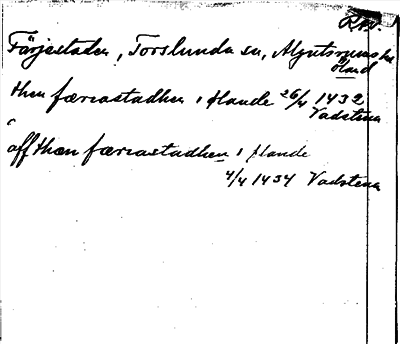 RAP.
Färjestaden, Torslunda sn, Algutsrums hd
Öland
then færiastadhen i ølande 26/4 1432
Vadstena
aff then færiastadhen i ølande
4/4 1434 Vadstena